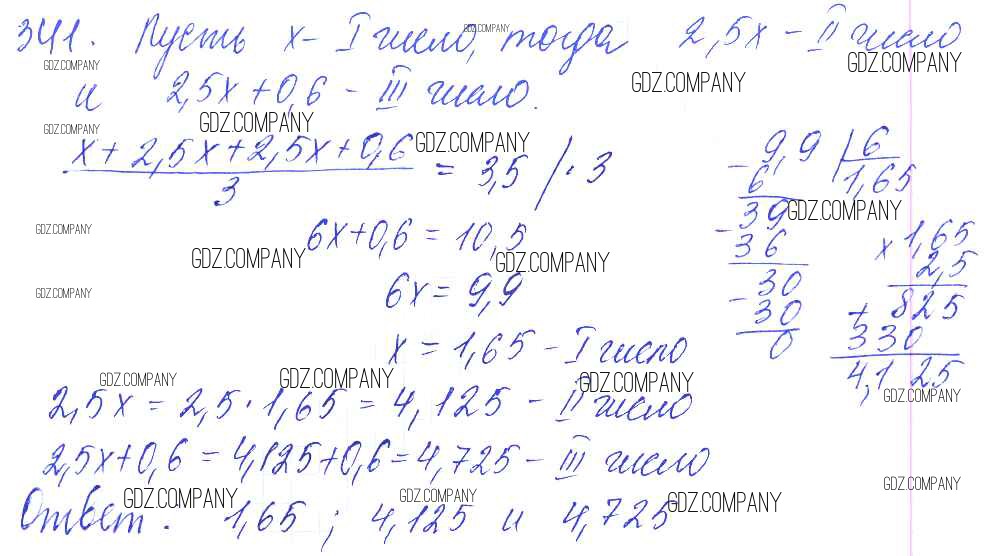 341. Пусть x - I число, тогда 2,5x - II число
GDZ.COMPANY
GDZ.COMPANY GDZ.COMPANY
и 2,5x+0,6 - III число.
GDZ.COMPANY
GDZ.COMPANY
GDZ.COMPANY GDZ.COMPANY
x+2,5x+2,5x+0,6
3
= 3,5 /·3
6x+0,6 = 10,5
GDZ.COMPANY GDZ.COMPANY GDZ.COMPANY
6x = 9,9
GDZ.COMPANY
x = 1,65 - I число
9,9 | 6
- 6 1,65
39 GDZ.COMPANY
- 36
30
- 30
0
x 1,65
2,5
+ 825
330
4,125
GDZ.COMPANY GDZ.COMPANY GDZ.COMPANY GDZ.COMPANY
2,5x = 2,5·1,65 = 4,125 - II число
2,5x+0,6 = 4,125+0,6 = 4,725 - III число
GDZ.COMPANY GDZ.COMPANY GDZ.COMPANY GDZ.COMPANY
Ответ: 1,65; 4,125 и 4,725